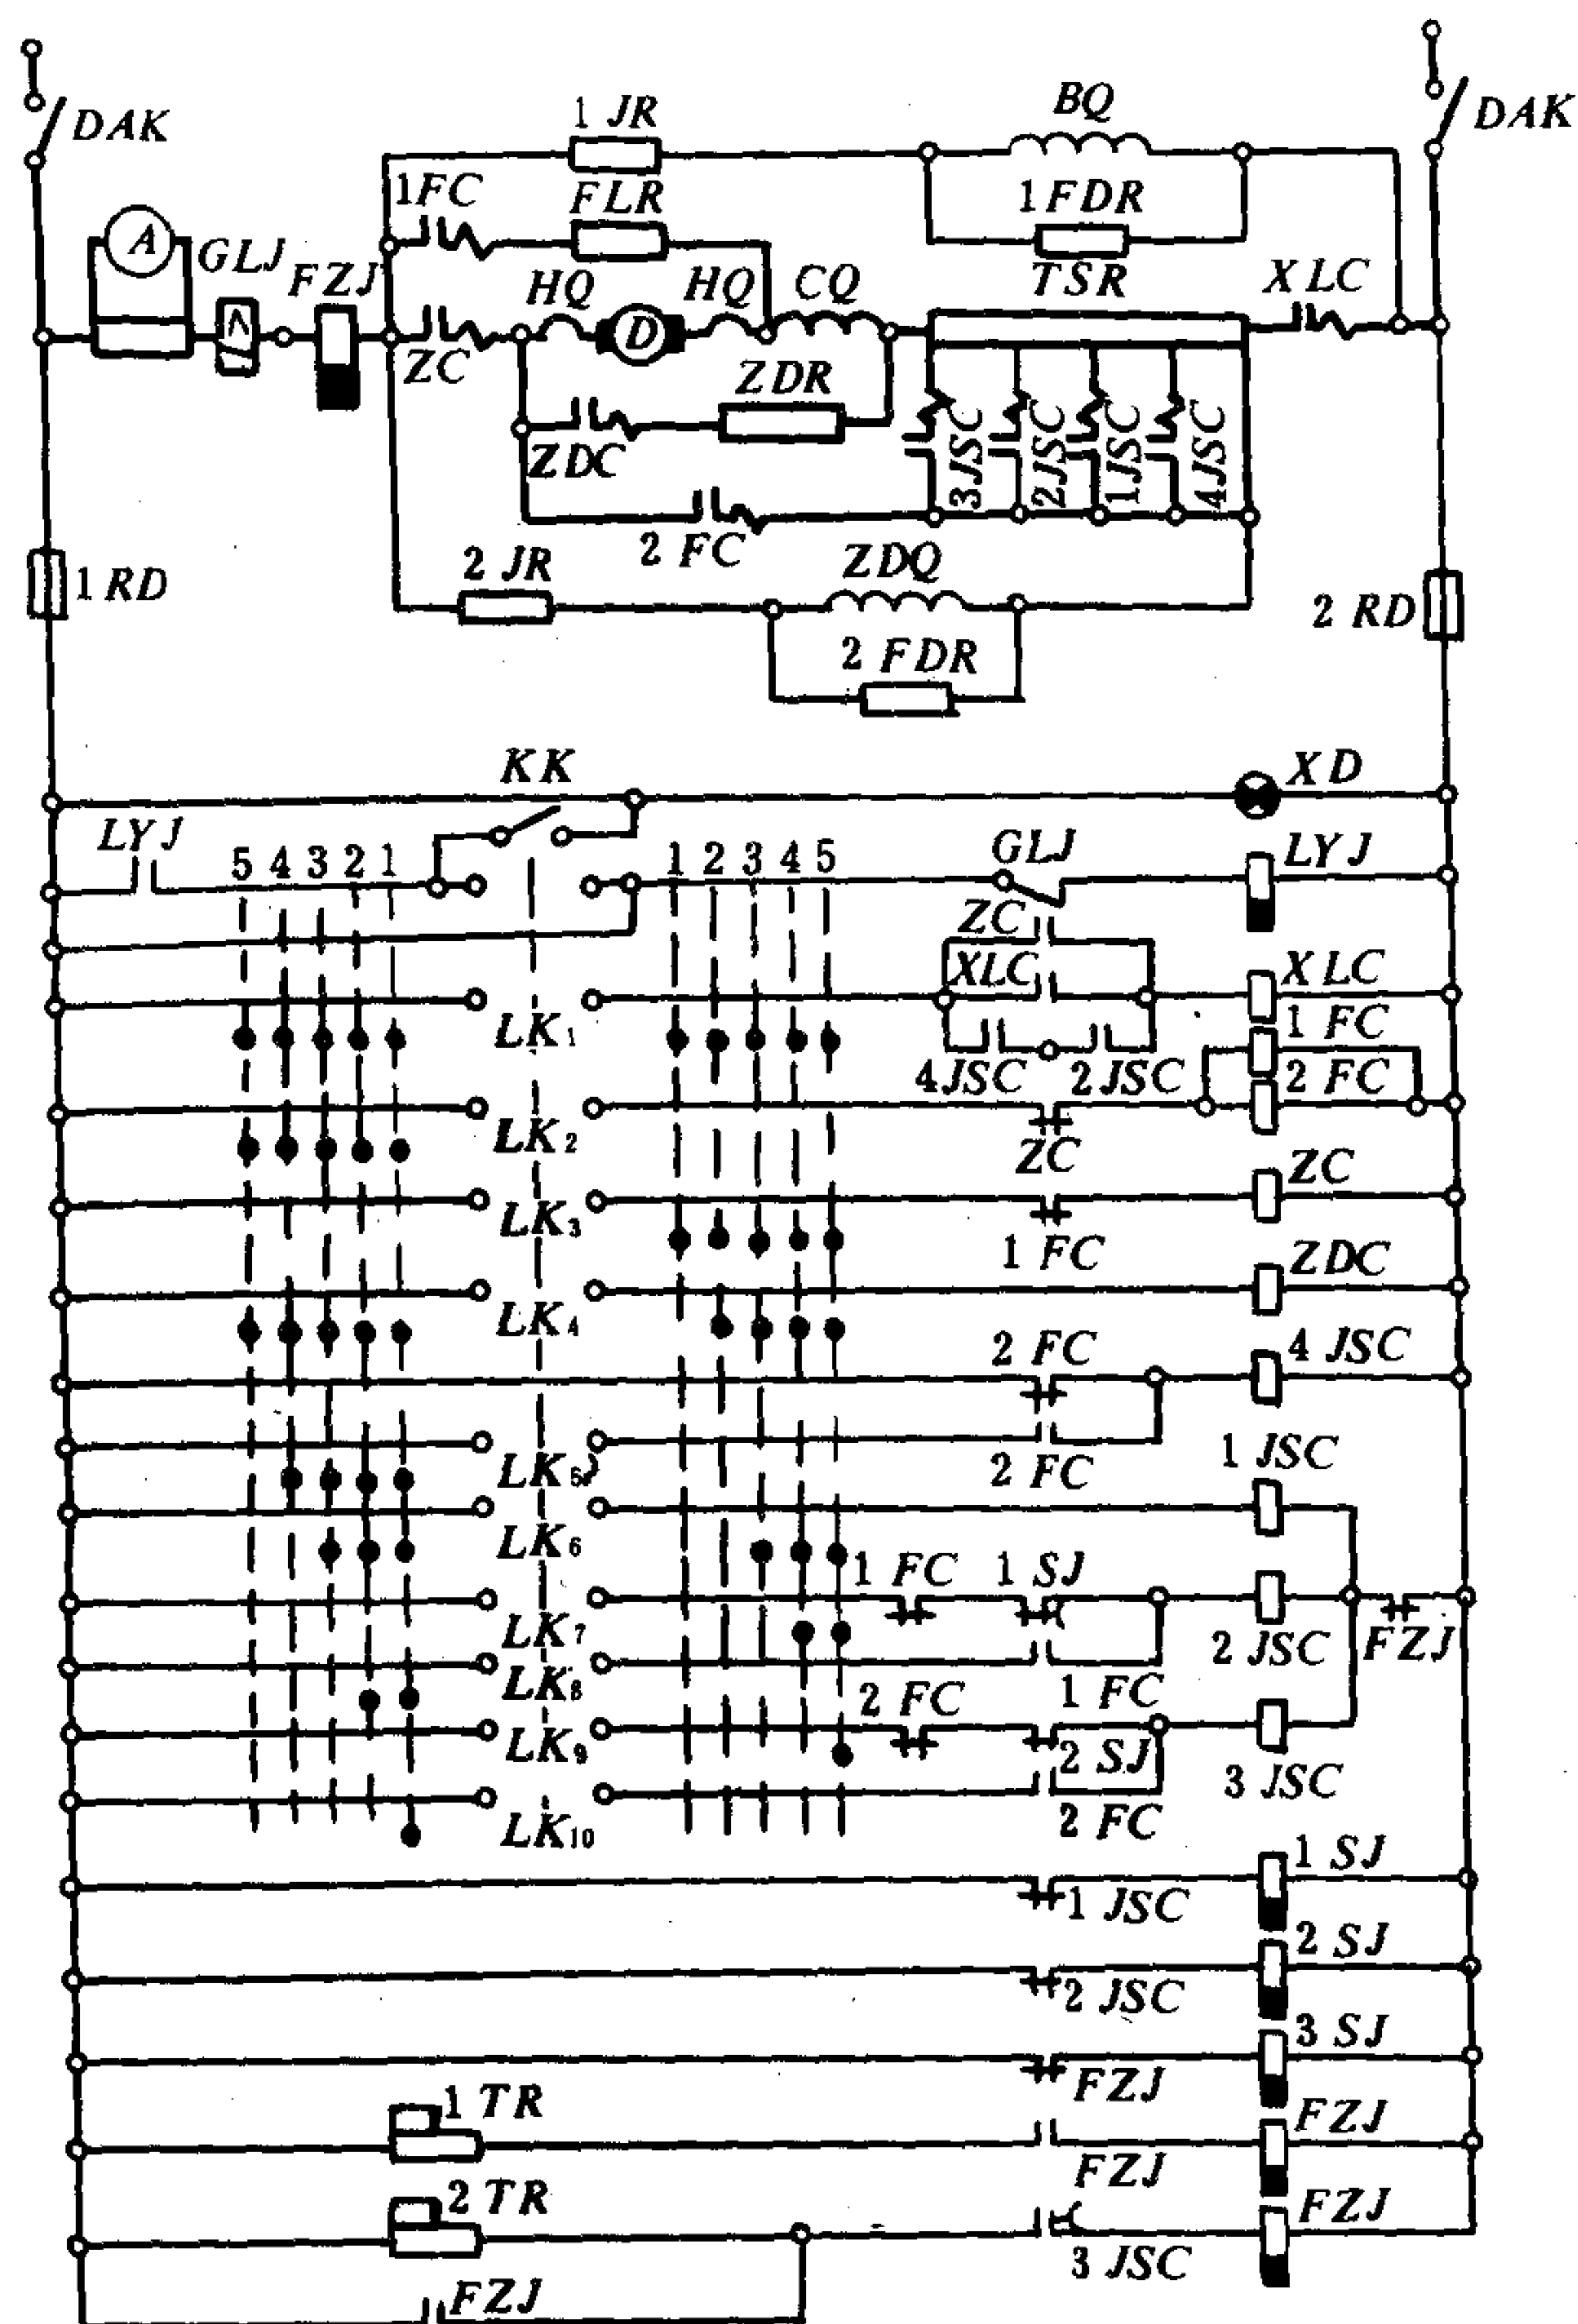 DAK
DAK
1 JR
BQ
1FC
FLR
1 FDR
A
GLJ
FZJ
HQ
HQ
CQ
TSR
XLC
D
ZC
ZDR
ZDC
3JSC
2JSC
1JSC
4JSC
2 FC
2 JR
ZDQ
1 RD
2 RD
2 FDR
KK
XD
LYJ
5 4 3 2 1
1 2 3 4 5
GLJ
LYJ
ZC
XLC
XLC
LK1
1 FC
4JSC
2JSC
2 FC
LK2
ZC
ZC
LK3
1 FC
ZDC
LK4
2 FC
4 JSC
LK5
2 FC
1 JSC
LK6
1 FC
1 SJ
LK7
2 JSC
FZJ
LK8
2 FC
1 FC
LK9
2 SJ
3 JSC
LK10
2 FC
1 SJ
1 JSC
2 SJ
2 JSC
3 SJ
FZJ
1 TR
FZJ
FZJ
2 TR
FZJ
3 JSC
FZJ